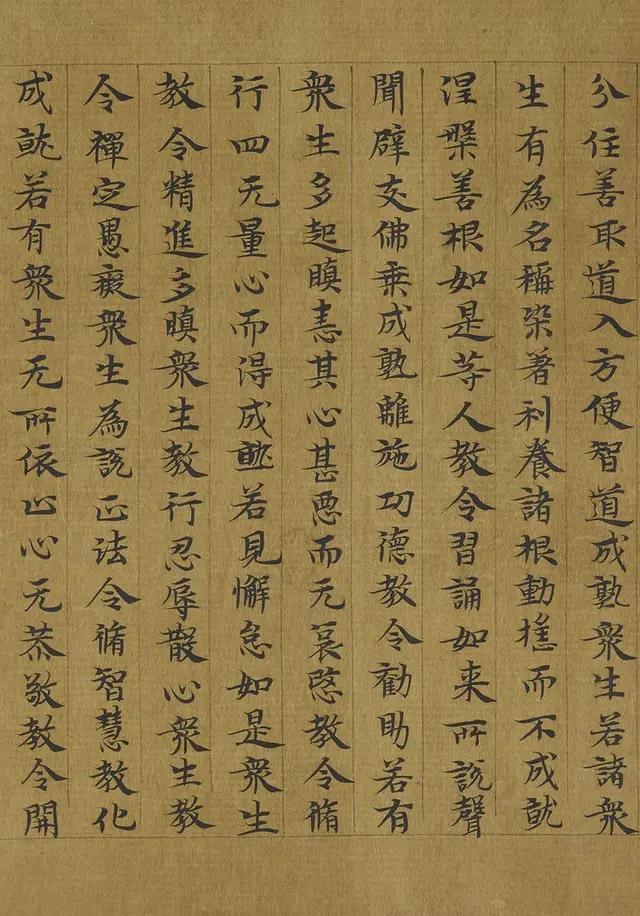 分住善取道入方便智道成熟衆生若諸衆
生有為名稱染著利養諸根動揺而不成就
涅槃善根如是等人教令習誦如来所說聲
聞辟支佛乗成熟離施功德教令勸助若有
衆生多起瞋恚其心甚惡而无哀愍教令脩
行四无量心而得成就若見懈怠如是衆生
教令精進多瞋衆生教行忍辱散心衆生教
令禪定愚癡衆生為說正法令脩智慧教化
成就若有衆生无所依止心无恭敬教令開